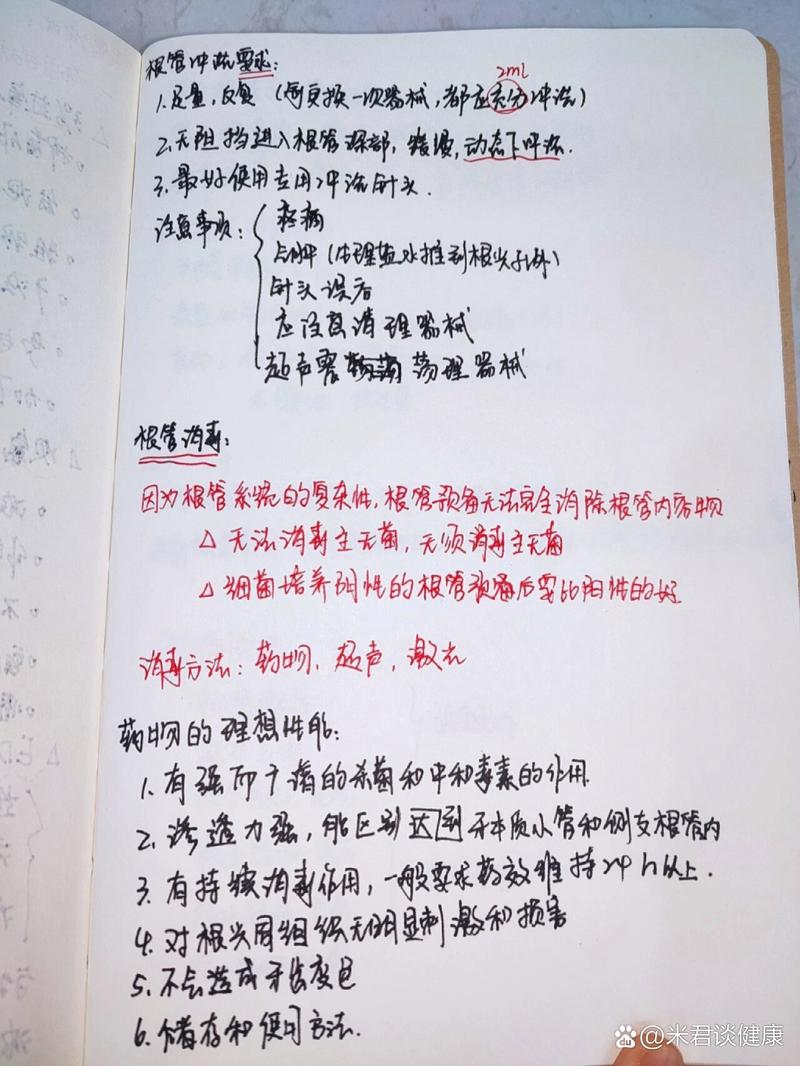 根管冲洗要求:
2ml
1.足量,反复(每更换一次器械,都应充分冲洗)
2.无阻挡进入根管深部,缓慢,动态下冲洗.
3.最好使用专用冲洗针头.
注意事项:
疼痛
(生理盐水推到根尖孔外)
针头误吞
应设良清理器械
超声震荡 荡理器械
根管消毒:
因为根管系统的复杂性,根管预备无法完全消除根管内容物
△无法消毒至无菌,无须消毒至无菌
△细菌培养阴性的根管预备后要比阳性的好
消毒方法:药物,超声,激光
药物的理想性能:
1.有强而广谱的杀菌和中和毒素的作用.
2.渗透力强,能区别达到牙本质小管和侧支根管内
3.有持续消毒作用,一般要求药效维持24h以上.
4.对根尖周组织无明显刺激和损害
5.不会造成牙齿变色
6.储存和使用方法.
@米君谈健康